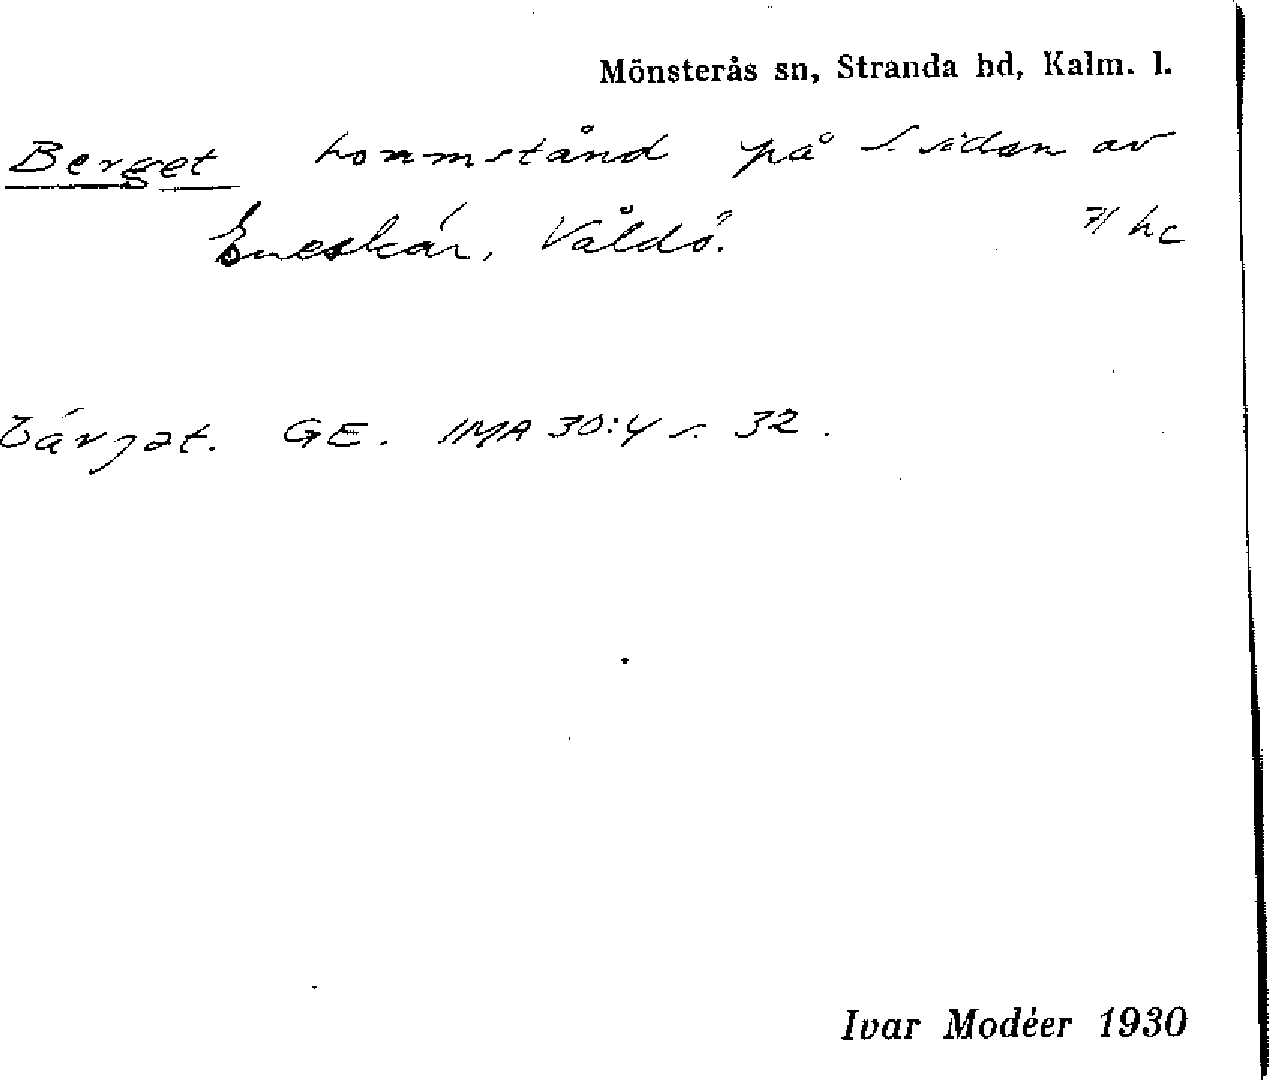 Mönsterås sn, Stranda hd, Kalm. l.
Berget hommstånd på S sidan av
Eneskär, Våldö. 7/ hc
bärjat. GE. IMA 30:4 s. 32.
Ivar Modéer 1930